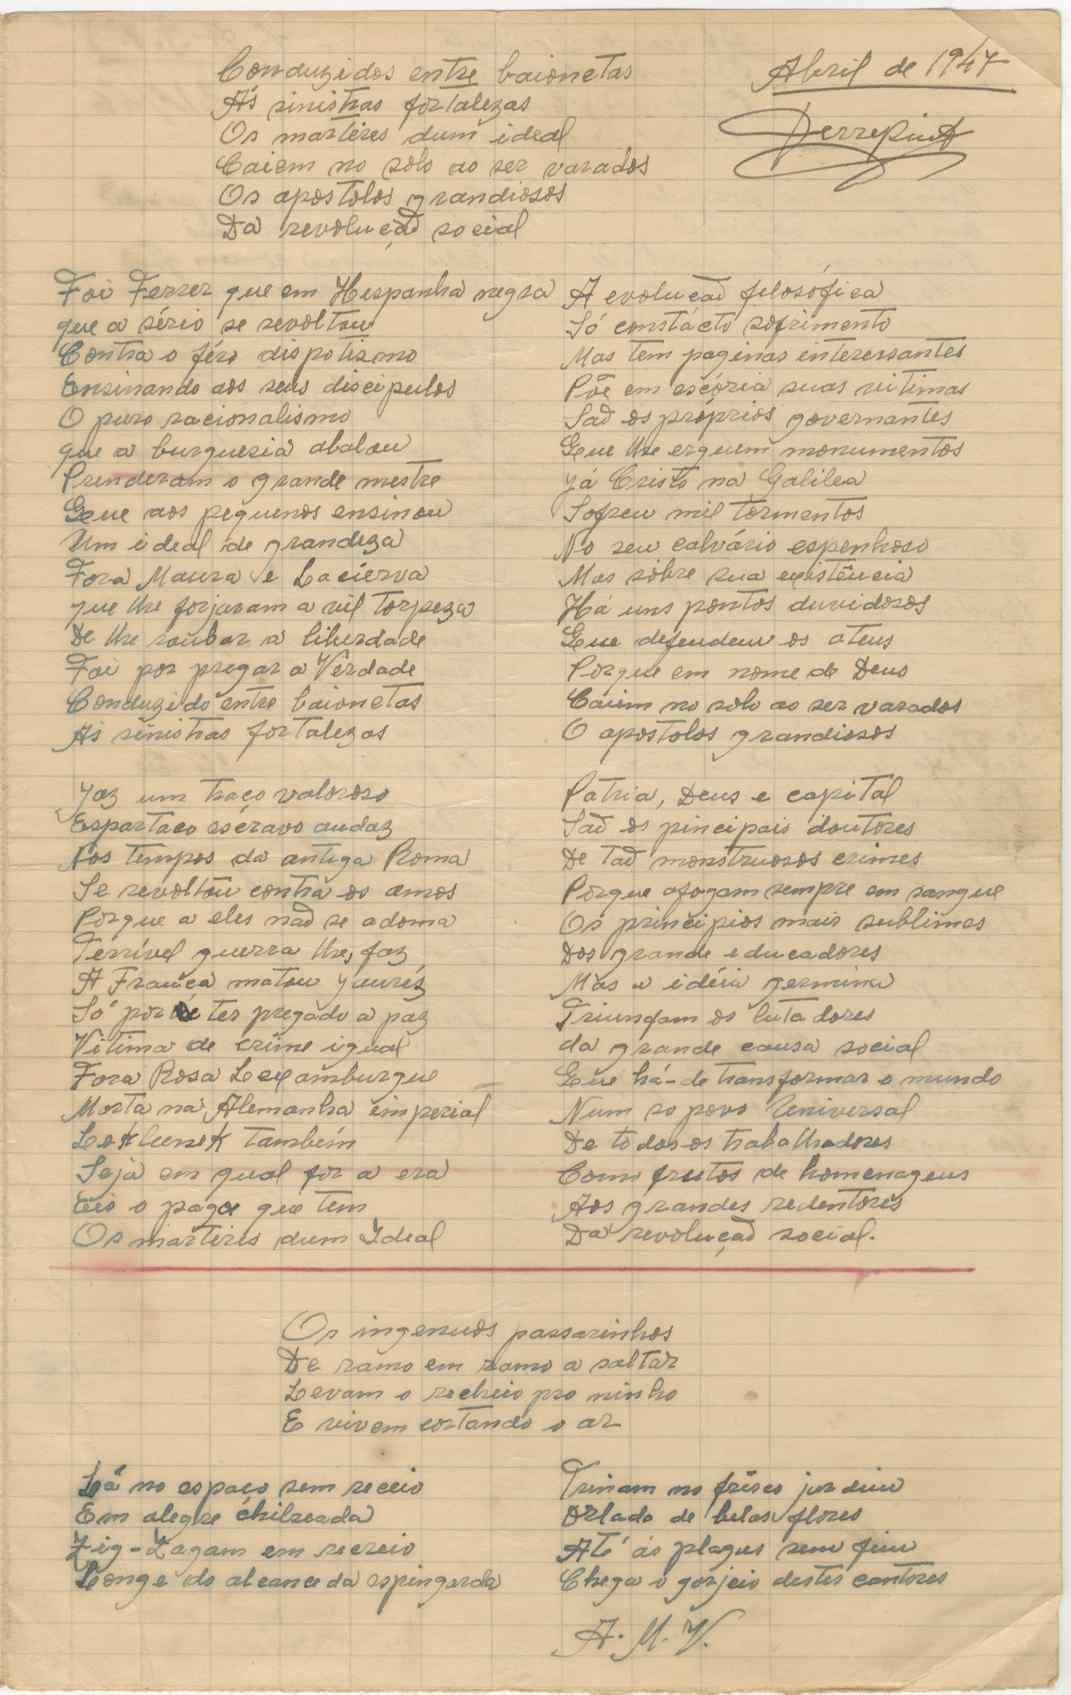 Conduzidos entre baionetas
Ás sinistras fortalezas
Os martéres dum ideal
Caiem no solo ao ser varados
Os apostolos grandiosos
Da revolução social
Abril de 1947
Foi Ferrer que em Hespanha negra
que a sério se revoltou
Contra o féro dispotismo
Ensinando aos seus discipulos
O puro racionalismo
que a burguesia abalou
Prenderam o grande mestre
Que aos pequenos ensinou
Um ideal de grandeza
Fora Maura e Lacierva
que lhe forjaram a vil torpeza
De lhe roubar a liberdade
Foi por pregar a Verdade
Conduzido entre baionetas
Ás sinistras fortalezas
Jaz um traço valoroso
Espartaco escravo audaz
Nos tempos da antiga Roma
Se revoltou contra os amos
Porque a eles não se adoma
Terrível guerra lhe faz
A França matou Jaurés
Só por ter pregado a paz
Vitima de crime igual
Fora Rosa Lexamburgue
Morta na Alemanha imperial
Loklunek também
Seja em qual for a era
Eis o paga que tem
Os martiris dum Ideal
A evolução filosófica
Só constácto sofrimento
Mas tem paginas interessantes
Põe em escória suas vitimas
São os próprios governantes
Que lhe erguem monumentos
Já Cristo na Galilea
Sofreu mil tormentos
No seu calvário espenhoso
Mas sôbre sua existência
Há uns pontos duvidosos
Que defendem os ateus
Porque em nome de Deus
Caiem no solo ao ser varados
O apostolos grandiosos
Patria, Deus e capital
São os pincipais doutores
De tão monstruosos crimes
Porque afogam sempre em sangue
Os principios mais sublimes
Dos grande educadores
Mas a idéia germina
Triunfam os lutadores
da grande causa social
Que há-de transformar o mundo
Num so povo Universal
De todos os trabalhadores
Como frutos de homenageus
Aos grandes redentores
Da revolução social.
Os ingenuos passarinhos
De ramo em ramo a saltar
Levam o recheio pro ninho
E vivem cortando o ar
Lá no espaço sem receio
Em alegre chilreada
Zig-Zagam em recreio
Longe do alcance da espingarda
Trinam no frises jardim
Orlado de belas flores
Até ás plagas sem fim
Chega o gorjeio destes cantores
A. M. V.